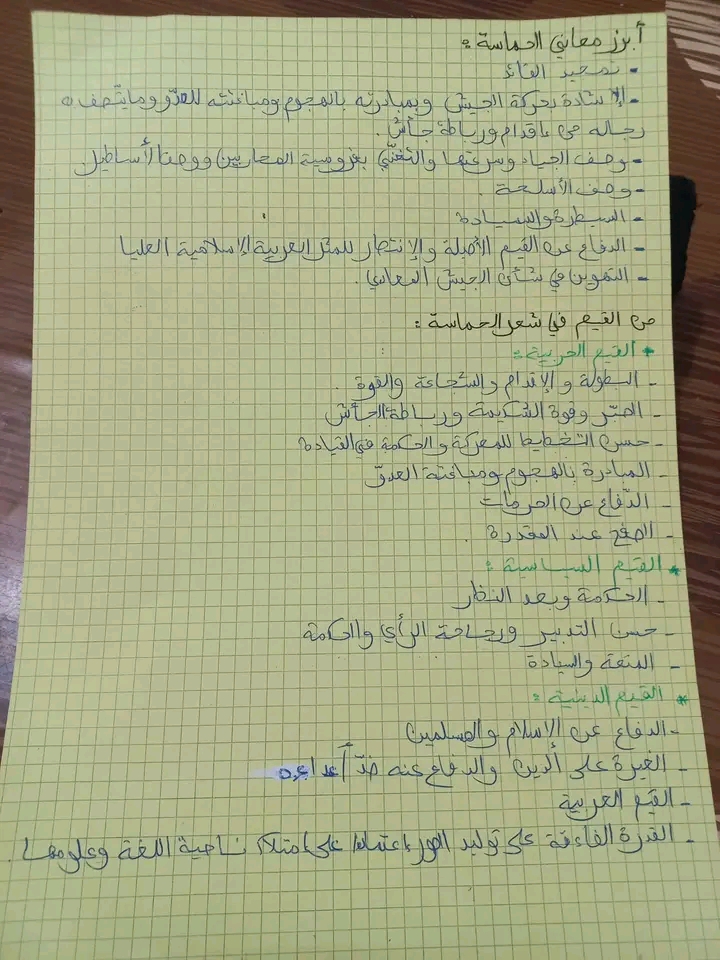 أبرز معاني الحماسة :
- تمجيد القائد
- الإشادة بحركة الجيش وبمبادرته بالهجوم ومباغتته للعدّو وما يتّصف به
رجاله من إقدام ورباطة جأش .
- وصف الجياد وسرعتها والتغنّي بفروسية المحاربين ووصف الأساطيل.
- وصف الأسلحة .
- السيطرة والسيادة
- الدفاع عن القيم الأصلة والإنتصار للمثل العربية الإسلامية العليا
- التهوين في شأن الجيش المعادي .
من القيم في شعر الحماسة :
* القيم الحربية :
- البطولة والإقدام والشجاعة والقوة .
- الصبّر وقوة الشكيمة ورباطة الجأش
- حسن التخطيط للمعركة والحكمة في القيادة
- المبادرة بالهجوم ومباغتة العدوّ
- الدّفاع عن الحرمات
- الصفح عند المقدرة .
* القيم السياسية :
- الحكمة وبعد النظار
- حسن التدبير ورجاحة الرأي والحكمة
- المنعة والسيادة
* القيم الدينية :
- الدفاع عن الإسلام والمسلمين
- الغيرة على الدين والدفاع عنه ضدّ أعداءه
- القيم العربية
- القدرة الفاءقة على توليد الصور إعتمادا على إمتلاك ناصية اللغة وعلومها .